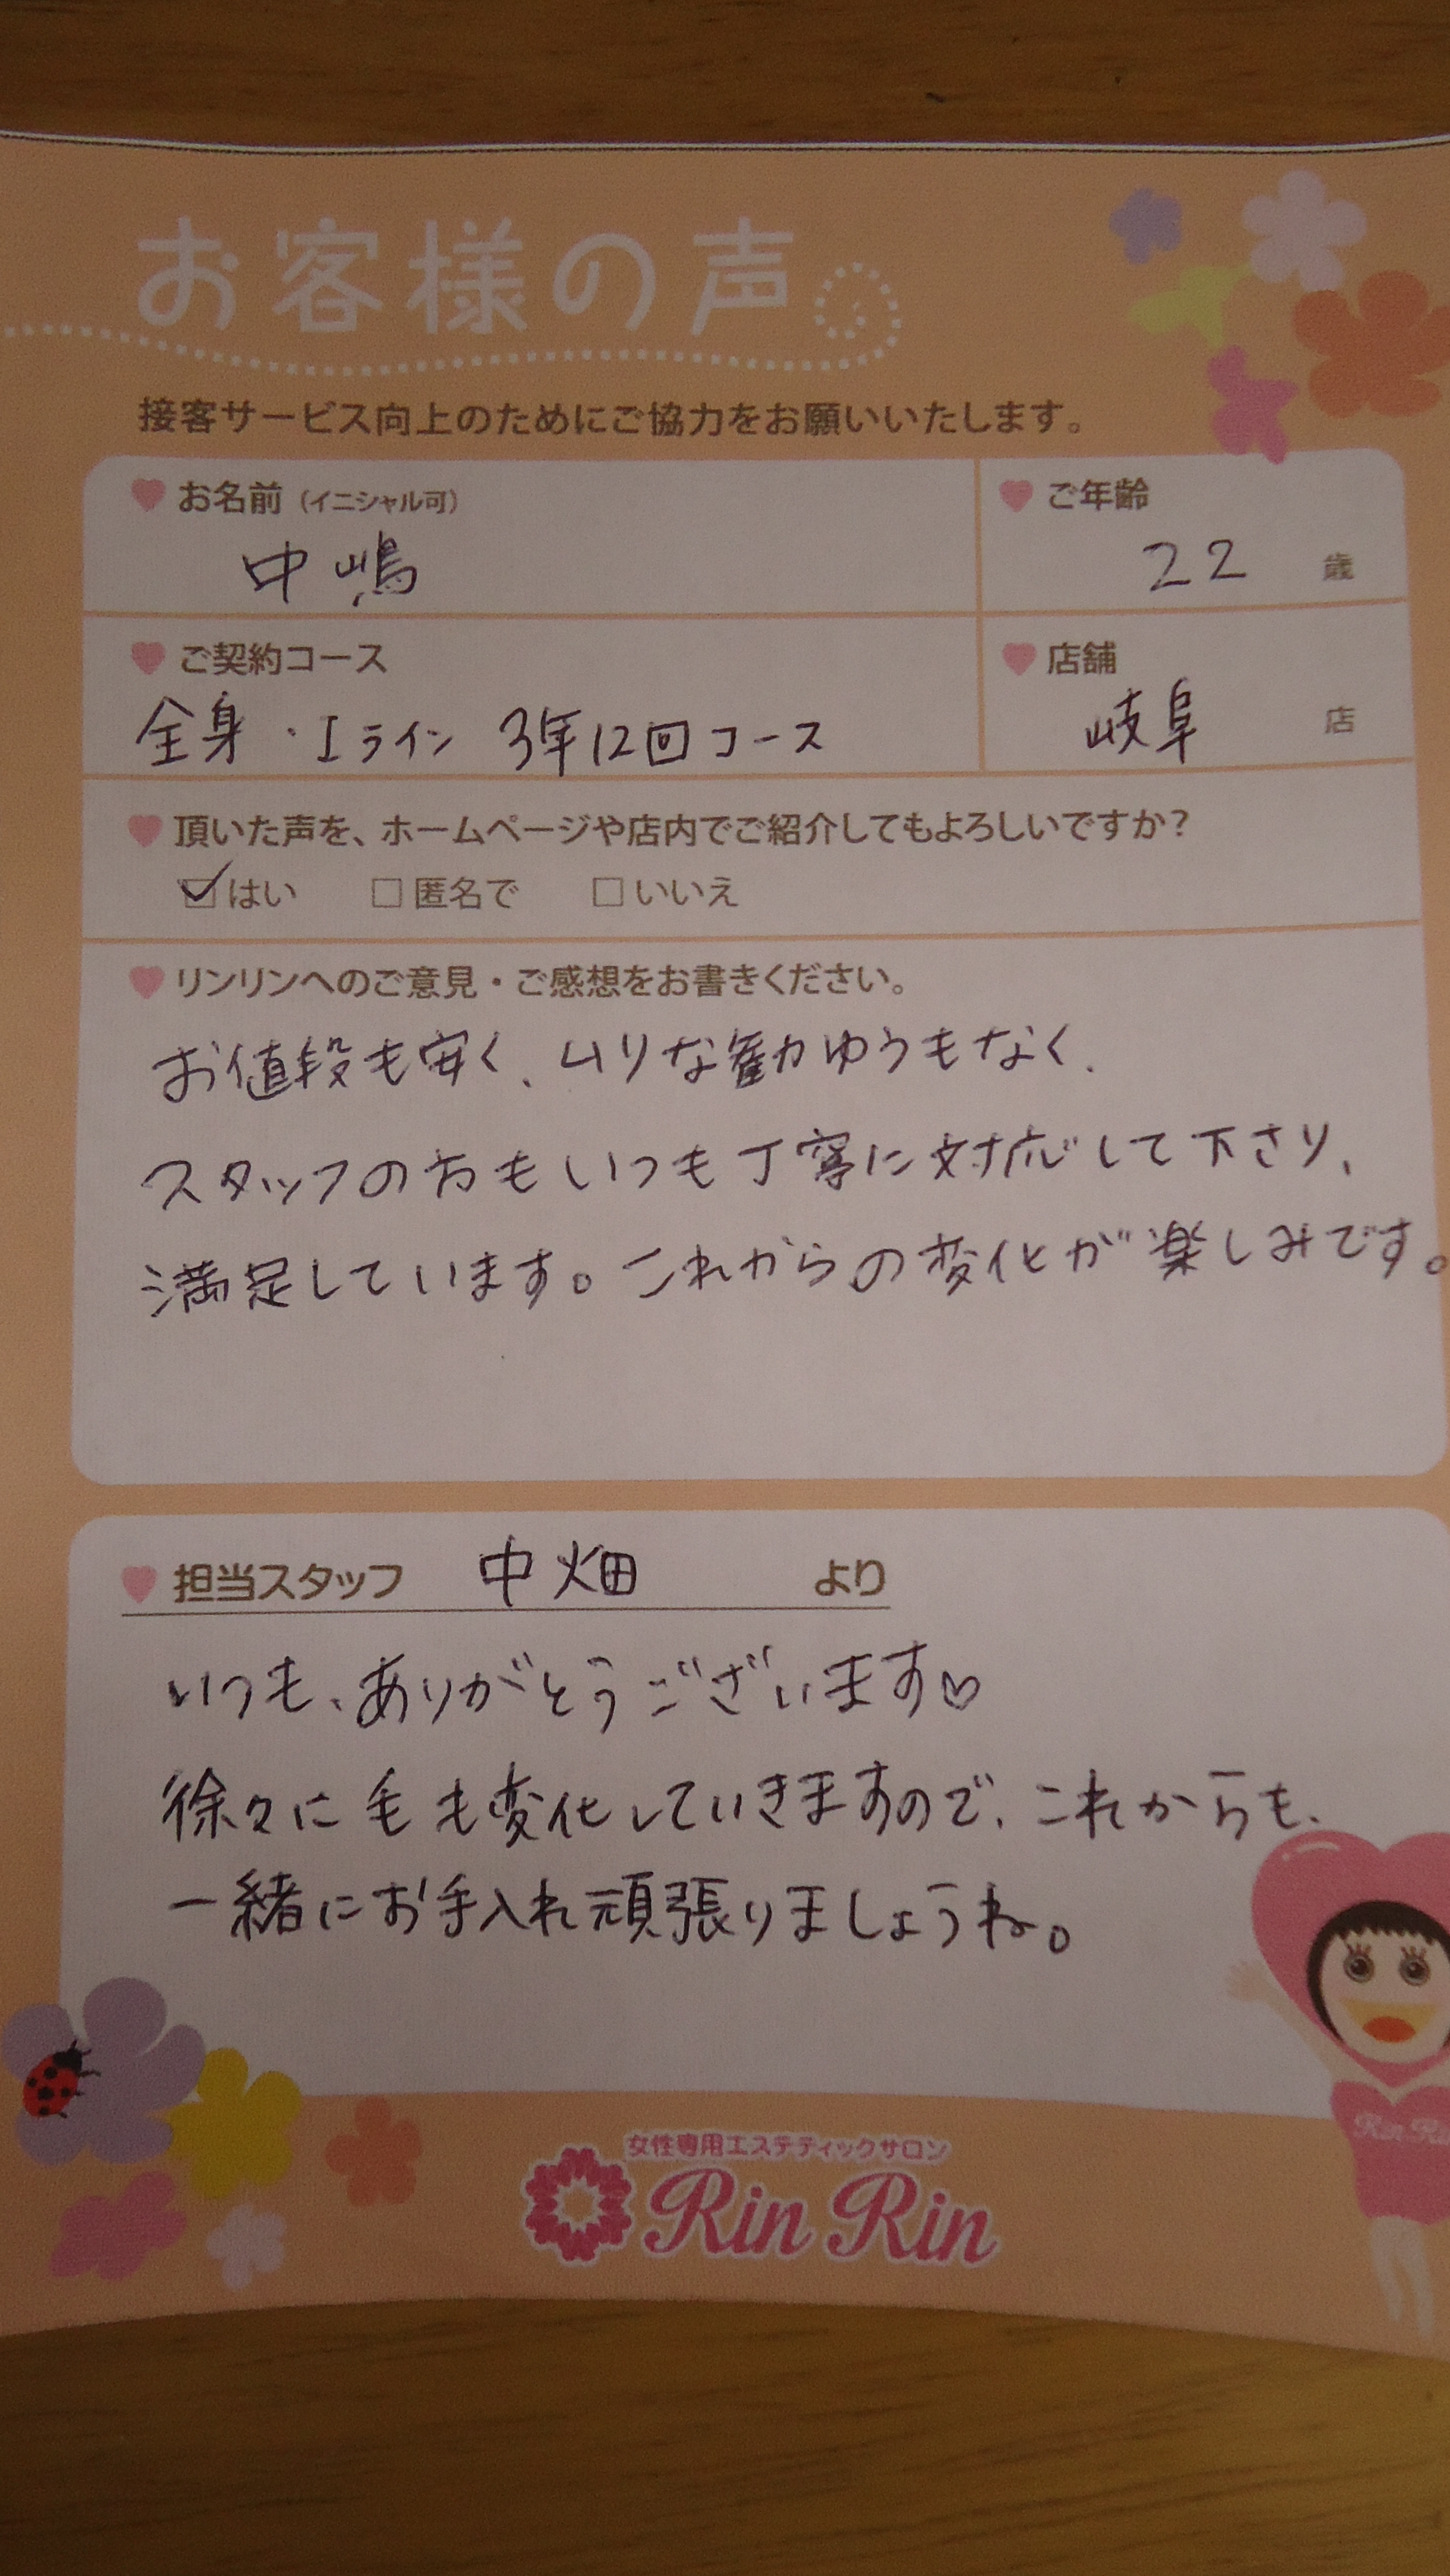 お客様の声
接客サービス向上のためにご協力をお願いいたします。
お名前（イニシャル可） ご年齢
中嶋 22 歳
ご契約コース 店舗
全身・Iライン 3年12回コース 岐阜 店
頂いた声を、ホームページや店内でご紹介してもよろしいですか？
はい 匿名で いいえ
リンリンへのご意見・ご感想をお書きください。
お値段も安く、ムリな勧かゆうもなく、
スタッフの方もいつも丁寧に対応して下さり、
満足しています。これからの変化が楽しみです。
担当スタッフ 中畑 より
いつも、ありがとうございます♡
徐々に毛も変化していきますので、これからも、
一緒にお手入れ頑張りましょうね。
女性専用エステティックサロン
Rin Rin